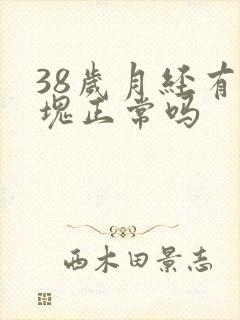 38歲月經有
塊正常吗
西木田景志